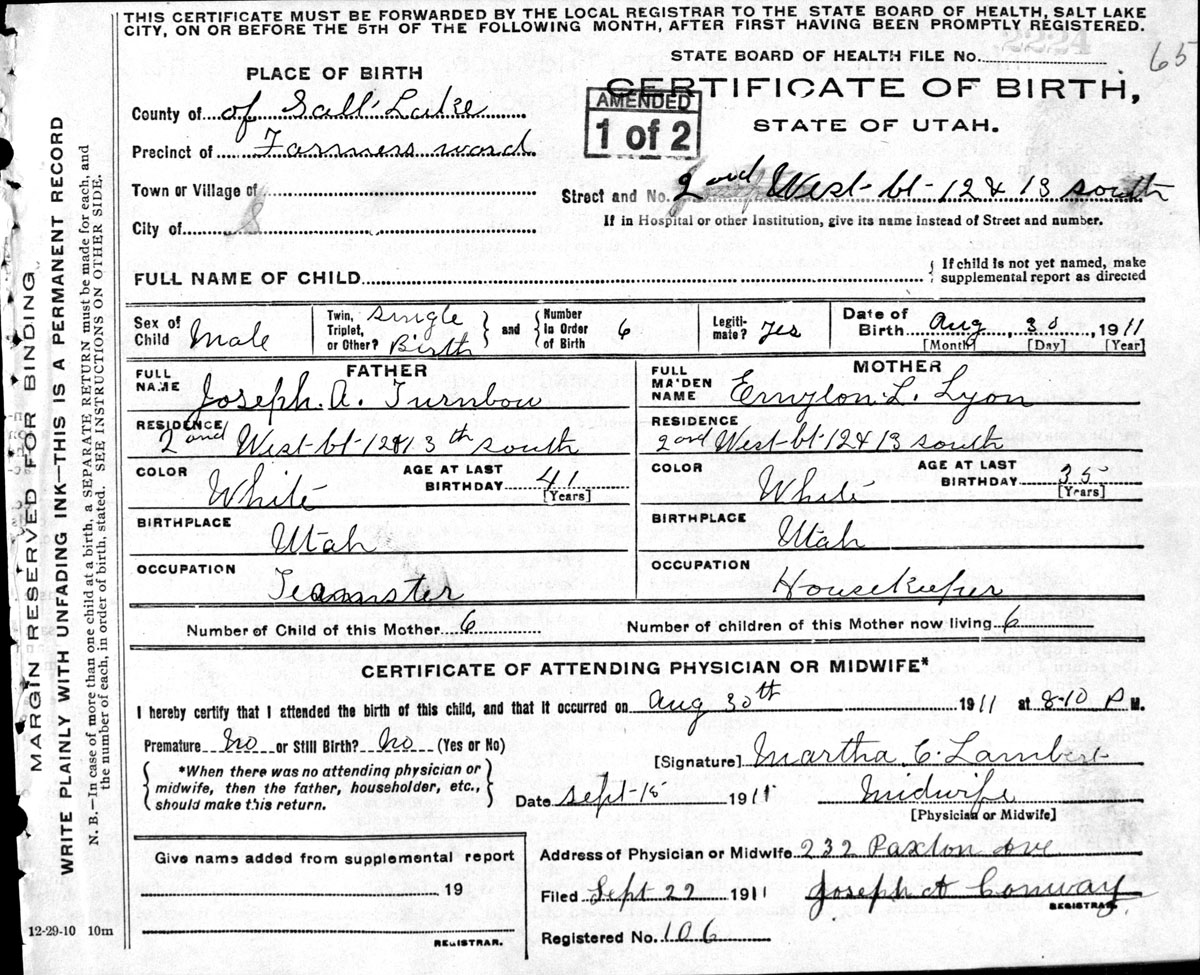 THIS CERTIFICATE MUST BE FORWARDED BY THE LOCAL REGISTRAR TO THE STATE BOARD OF HEALTH, SALT LAKE
CITY, ON OR BEFORE THE 5TH OF THE FOLLOWING MONTH, AFTER FIRST HAVING BEEN PROMPTLY REGISTERED.
STATE BOARD OF HEALTH FILE No.
65
PLACE OF BIRTH
CERTIFICATE OF BIRTH,
STATE OF UTAH.
AMENDED
1 of 2
County of of Salt Lake
Precinct of Farmers ward
Town or Village of
Street and No. 2nd West bt 12 & 13 south
City of
If in Hospital or other Institution, give its name instead of Street and number.
FULL NAME OF CHILD
If child is not yet named, make
supplemental report as directed
Sex of Child Male
Twin, Triplet, or Other? single Birth
and Number In Order of Birth 6
Legitimate? yes
Date of Birth Aug 30, 1911
[Month] [Day] [Year]
FATHER
FULL NAME Joseph. A. Turnbow
RESIDENCE
2nd West bt 12&13th south
COLOR White
AGE AT LAST BIRTHDAY 41
[Years]
BIRTHPLACE
Utah
OCCUPATION
Teamster
MOTHER
FULL MAIDEN NAME L. Lyon
RESIDENCE
2nd West bt 12 & 13 south
COLOR White
AGE AT LAST BIRTHDAY 35
[Years]
BIRTHPLACE
Utah
OCCUPATION
Housekeeper
Number of Child of this Mother 6
Number of children of this Mother now living 6
CERTIFICATE OF ATTENDING PHYSICIAN OR MIDWIFE*
I hereby certify that I attended the birth of this child, and that it occurred on Aug 30th 1911 at 8-10 P M.
Premature No or Still Birth? No (Yes or No)
*When there was no attending physician or
midwife, then the father, householder, etc.,
should make this return.
[Signature] Martha C. Lambert
Date Sept-18 1911
Midwife
[Physician or Midwife]
Give name added from supplemental report
19
REGISTRAR.
Address of Physician or Midwife 232 Paxton Ave
Filed Sept 22 1911 Joseph A Conway
REGISTRAR.
Registered No. 106
12-29-10 10m
MARGIN RESERVED FOR BINDING
WRITE PLAINLY WITH UNFADING INK—THIS IS A PERMANENT RECORD
N. B.—In case of more than one child at a birth, a SEPARATE RETURN must be made for each, and
the number of each, in order of birth, stated. SEE INSTRUCTIONS ON OTHER SIDE.